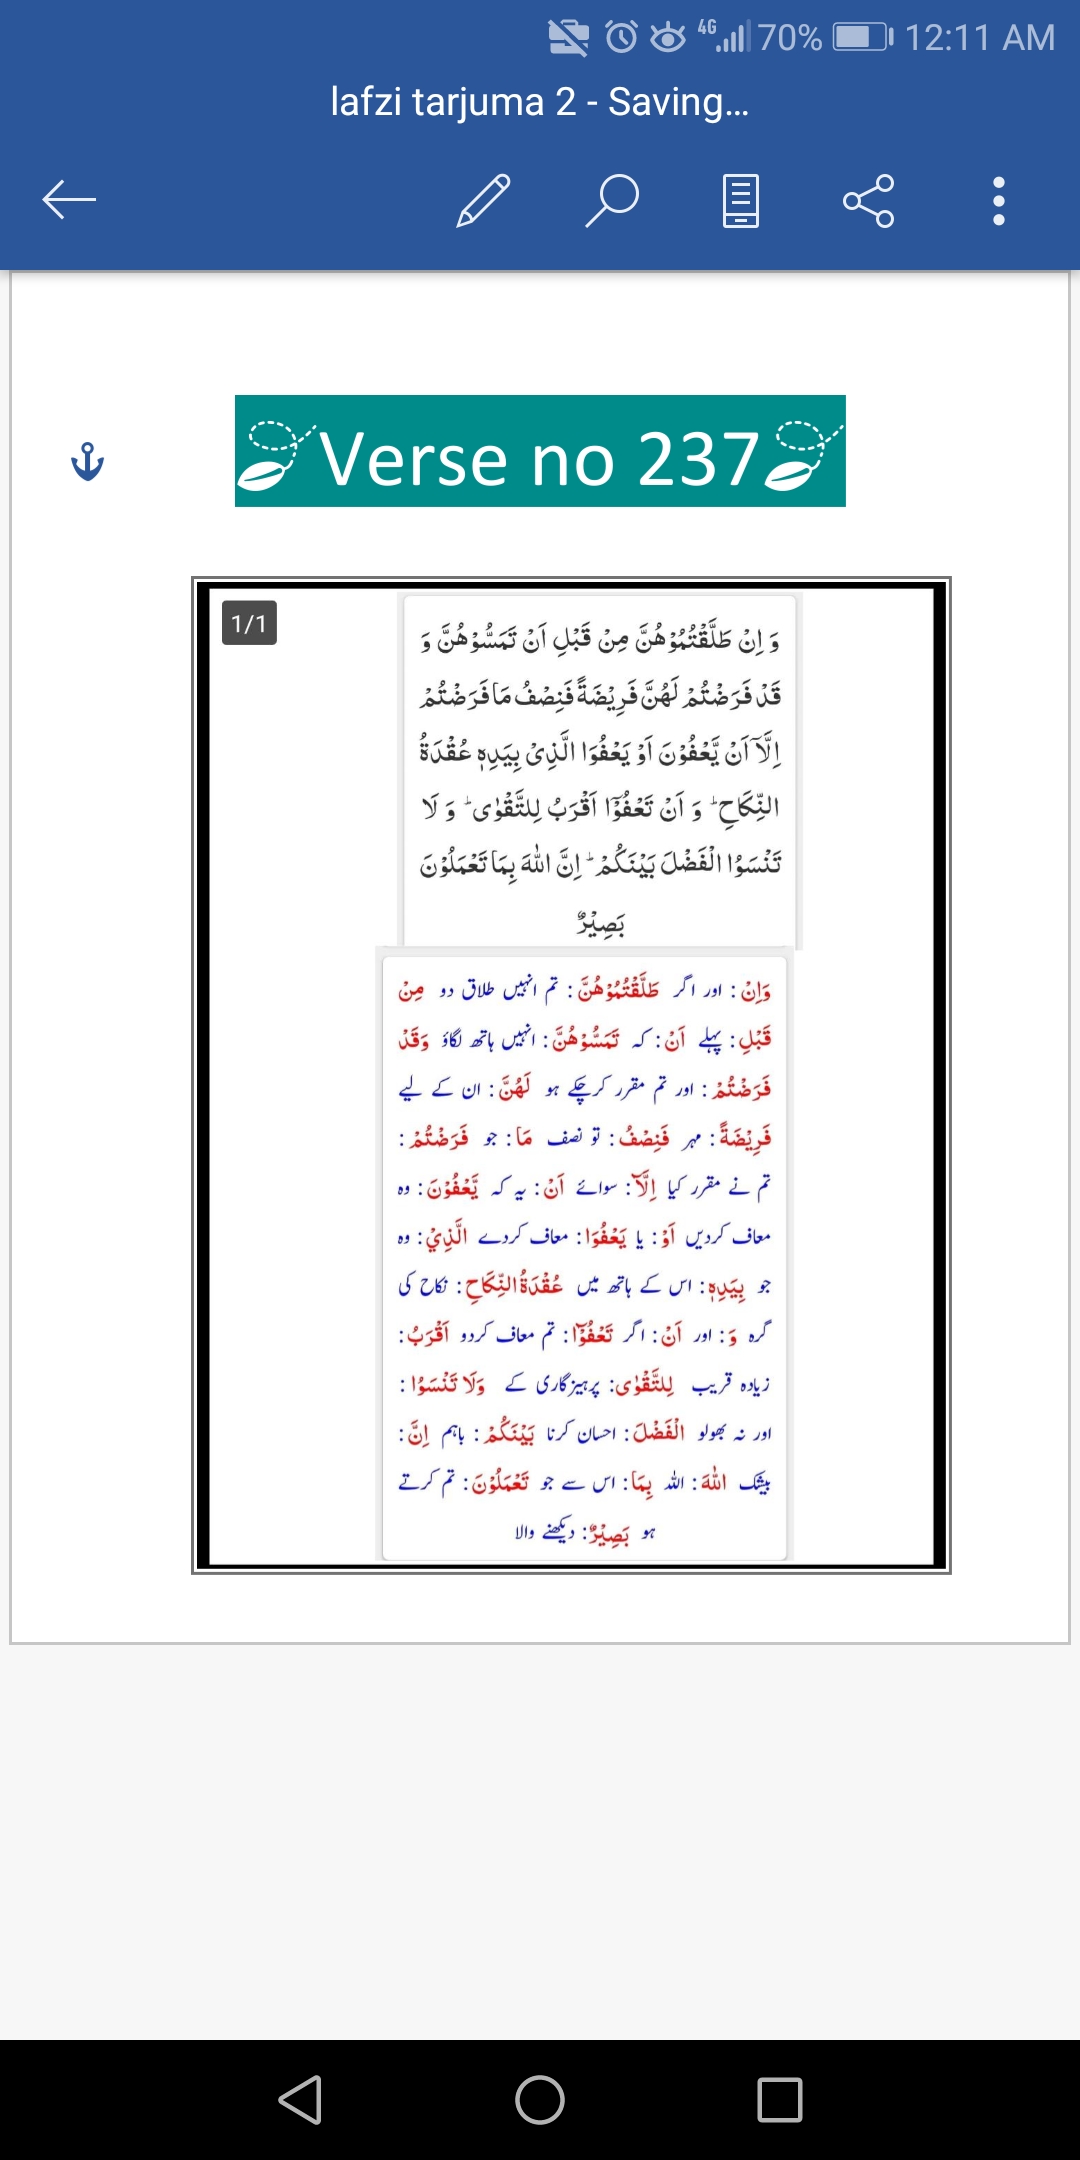 4G 70% 12:11 AM
lafzi tarjuma 2 - Saving...
Verse no 237
1/1
وَ اِنْ طَلَّقْتُمُوْهُنَّ مِنْ قَبْلِ اَنْ تَمَسُّوْهُنَّ وَ
قَدْ فَرَضْتُمْ لَهُنَّ فَرِيْضَةً فَنِصْفُ مَا فَرَضْتُمْ
اِلَّاۤ اَنْ يَّعْفُوْنَ اَوْ يَعْفُوَا الَّذِىْ بِيَدِهٖ عُقْدَةُ
النِّكَاحِ ؕ وَ اَنْ تَعْفُوْۤا اَقْرَبُ لِلتَّقْوٰى ؕ وَ لَا
تَنْسَوُا الْفَضْلَ بَيْنَكُمْ ؕ اِنَّ اللّٰهَ بِمَا تَعْمَلُوْنَ
بَصِيْرٌ
وَاِنْ : اور اگر طَلَّقْتُمُوْھُنَّ : تم انہیں طلاق دو مِنْ
قَبْلِ : پہلے اَنْ : کہ تَمَسُّوْھُنَّ : انہیں ہاتھ لگاؤ وَقَدْ
فَرَضْتُمْ : اور تم مقرر کرچکے ہو لَھُنَّ : ان کے لیے
فَرِيْضَةً : مہر فَنِصْفُ : تو نصف مَا : جو فَرَضْتُمْ :
تم نے مقرر کیا اِلَّآ : سوائے اَنْ : یہ کہ يَّعْفُوْنَ : وہ
معاف کردیں اَوْ : یا يَعْفُوَا : معاف کردے الَّذِيْ : وہ
جو بِيَدِهٖ : اس کے ہاتھ میں عُقْدَةُ النِّكَاحِ : نکاح کی
گرہ وَ : اور اَنْ : اگر تَعْفُوْٓا : تم معاف کردو اَقْرَبُ :
زیادہ قریب لِلتَّقْوٰى : پرہیزگاری کے وَلَا تَنْسَوُا :
اور نہ بھولو الْفَضْلَ : احسان کرنا بَيْنَكُمْ : باہم اِنَّ :
بیشک اللّٰهَ : اللہ بِمَا : اس سے جو تَعْمَلُوْنَ : تم کرتے
ہو بَصِيْرٌ : دیکھنے والا